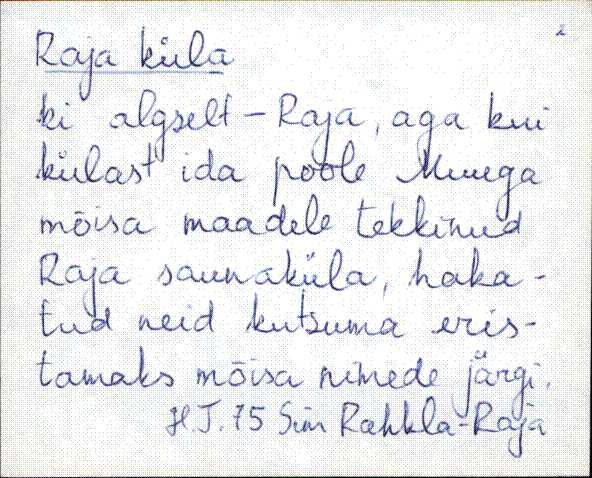 2
Raja küla
ki algselt - Raja, aga kui
külast ida poole Muuga
mõisa maadele tekkinud
Raja saunaküla, haka-
tud neid kutsuma eris-
tamaks mõisa nimede järgi.
H.J. 75 Sim Rahkla-Raja